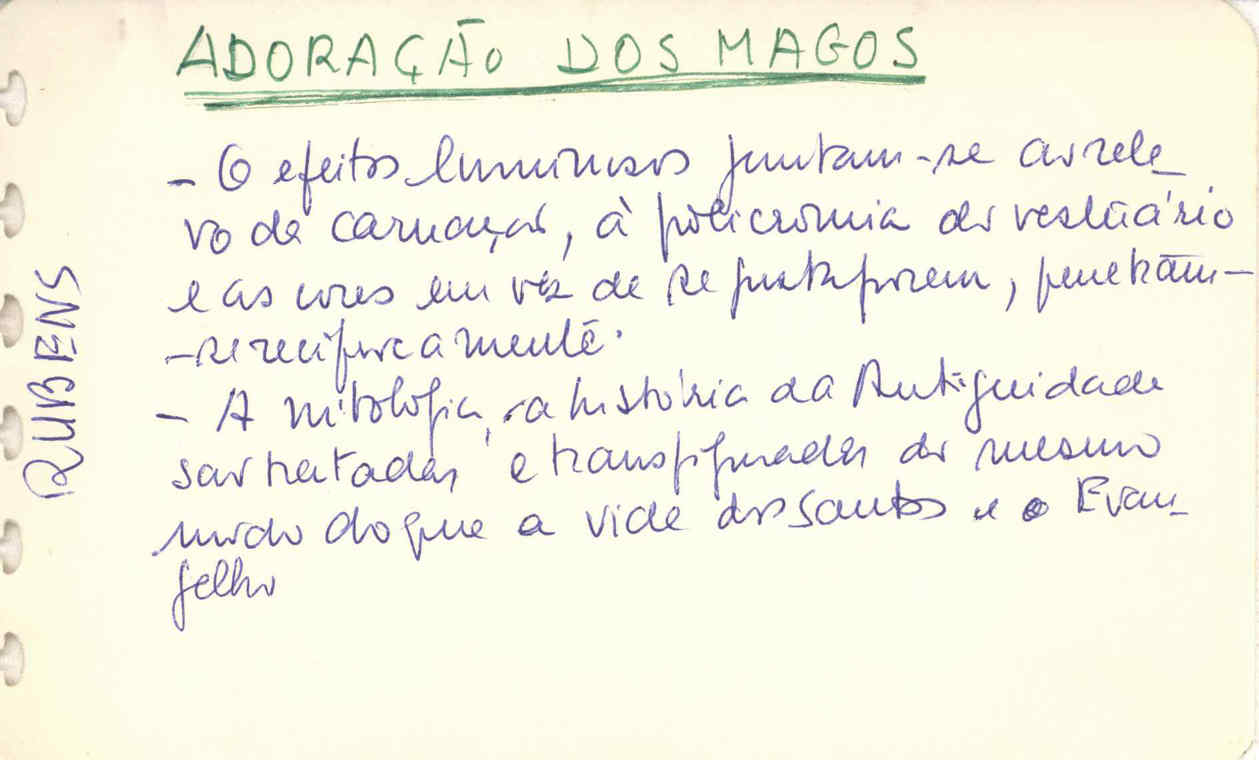 ADORAÇÃO DOS MAGOS
RUBENS
- O efeitos luminosos juntam-se ao rele_
vo da carnação, à policromia do vestuário
e as cores em vez de se justaporem, penetram-
-se reciprocamente.
- A mitologia, a história da Antiguidade
são tratadas e transfiguradas do mesmo
modo do que a vida dos Santos e o Evan_
gelho